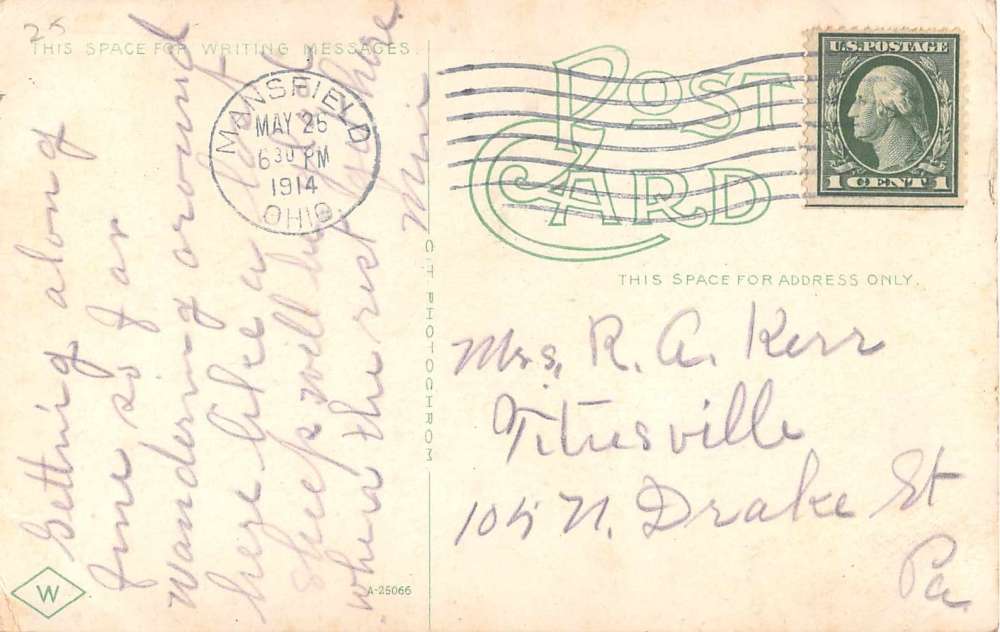 25
THIS SPACE FOR WRITING MESSAGES.
Getting along
fine so far
wandering around
here like a lost
sheep will be
when the rest
Min
MANSFIELD
MAY 26
6 30 PM
1914
OHIO
POST
CARD
U.S. POSTAGE
1 CENT 1
C.T. PHOTOCHROM
THIS SPACE FOR ADDRESS ONLY.
Mrs. R. A. Kerr
Titusville
N. Drake St
Pa
W
A-25066